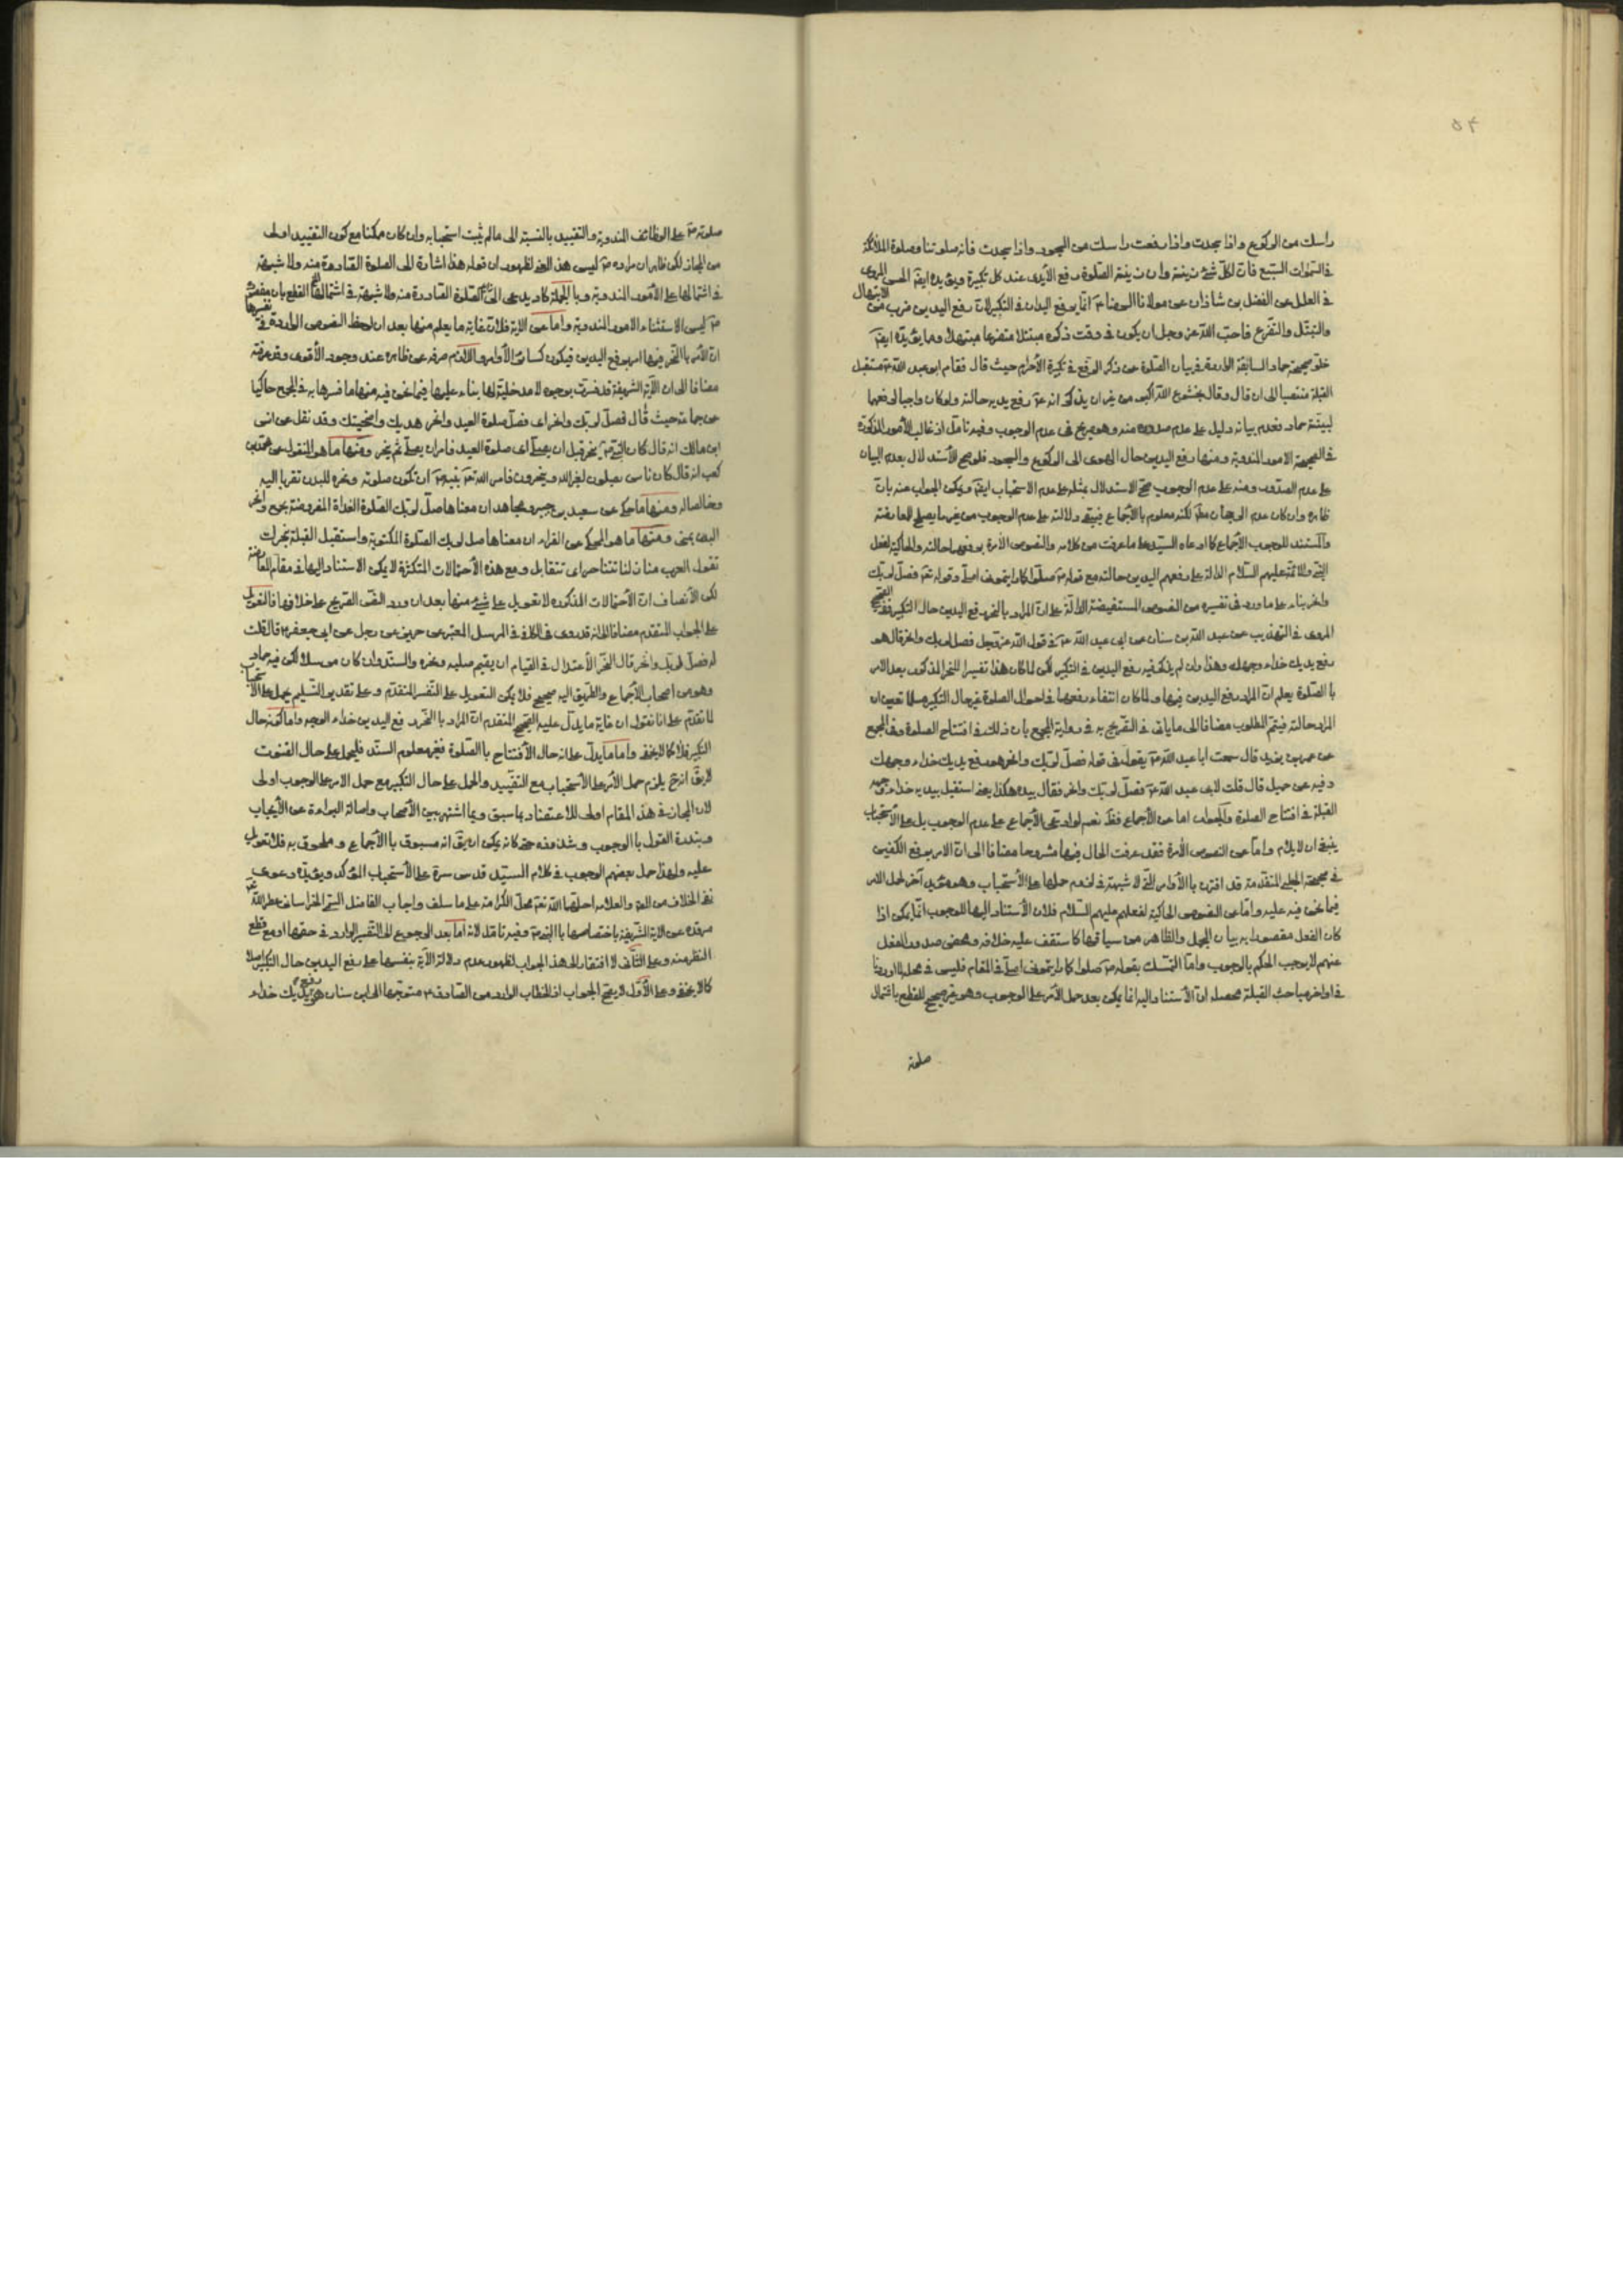 ٥٤
راسك من الركوع واذا سجدت واذا رفعت راسك من السجود واذا سجدت فانه صلوتنا وصلوة الملائكة
فى السموات السبع فان لكل شئ زينة وان زينة الصلوة رفع الأيدى عند كل تكبيرة ويؤيده ايضا الحسن المروى
فى العلل عن الفضل بن شاذان عن مولانا الرضا ع انما يرفع اليدان فى التكبيرلان رفع اليدين ضرب من الابتهال
والتبتل والتضرع فاحب الله عز وجل ان يكون فى وقت ذكره متبتلا متضرعا مبتهلا ومما يؤيده ايضا
خلو صحيحة حماد السابقة الواردة فى بيان الصلوة عن ذكر الرفع فى تكبيرة الأحرام حيث قال فقام ابو عبد الله ع مستقبل
القبلة منتصبا الى ان قال وقال بخشوع الله اكبر من غير ان يذكر انه ع رفع يديه حالته ولو كان واجبا لرفعهما
لبينه حماد فعدم بيانه دليل على عدم صدوره منه وهو صريح فى عدم الوجوب وفيه تامل اذ غالب الأمور المذكورة
فى الصحيحة الامور المندوبة ومنها رفع اليدين حال الهوى الى الركوع والسجود فلو صح الأستدلال بعدم البيان
على عدم الصدور ومنه على عدم الوجوب صح الاستدلال بمثله على عدم الاستحباب ايضا ويمكن الجواب عنه بان
ظاهره وان كان عدم الرجحان مطلقا لكنه معلوم بالأجماع فيبقى دلالته على عدم الوجوب من غير ما يصلح للمعارضة
والمستند للوجوب الأجماع كما ادعاه السيد على ما عرفت من كلامه والنصوص الأمرة برفعهما حالته والحاكية لفعل
النبى والائمة عليهم السلام الدالة على رفعهم اليدين حالته مع قوله ص صلوا كما رايتمونى اصلى وقوله تعالى فصل لربك
وانحر بناء على ما ورد فى تفسيره من النصوص المستفيضة الدالة على ان المراد بالنحر رفع اليدين حال التكبير ففى الصحيح
المروى فى التهذيب عن عبد الله بن سنان عن ابى عبد الله ع فى قول الله عز وجل فصل لربك وانحر قال هو
رفع يديك حذاء وجهك وهذا وان لم يذكر فيه رفع اليدين فى التكبير لكن لما كان هذا تفسيرا للنحر المذكور بعد الامر
با الصلوة يعلم ان المراد رفع اليدين فيها ولما كان انتفاء رفعهما فى احوال الصلوة غير حال التكبير مسلما تعين ان
المراد حالته فيتم المطلوب مضافا الى ما ياتى فى التصريح به فى رواية المجمع بان ذلك فى افتتاح الصلوة وفى المجمع
عن عمر بن يزيد قال سمعت ابا عبد الله ع يقول فى قوله فصل لربك وانحر هو رفع يديك حذاء وجهك
وفيه عن جميل قال قلت لابى عبد الله ع فصل لربك وانحر فقال بيده هكذا يعنى استقبل بيديه حذاء وجهه
القبلة فى افتتاح الصلوة والجواب اما عن الأجماع فقد نعم لو ادعى الأجماع على عدم الوجوب بل على الأستحباب
ينبغى ان لا يلام واما عن النصوص الأمرة فقد عرفت الحال فيها مشروحا مضافا الى ان الامر برفع الكفين
فى صحيحة الحلبى المتقدمة قد اقترن بالأوامر التى لا شبهة فى لزوم حملها على الأستحباب وهو مؤيد آخر لحمل الامر
فيما نحن فيه عليه واما عن النصوص الحاكية لفعلهم عليهم السلام فلان الأستناد اليها للوجوب انما يمكن اذا
كان الفعل مقصودا به بيان المجمل والظاهر من سياقها كما ستقف عليه خلافه ومحض صدور الفعل
عنهم لا يوجب الحكم بالوجوب واما التمسك بقوله ص صلوا كما رايتمونى اصلى فى المقام فليس فى محله لما اوردنا
فى اواخر مباحث القبلة محصله ان الأستناد اليه انما يمكن بعد حمل الأمر على الوجوب وهو غير صحيح للقطع باشتمال
صلوته
صلوته ص على الوظائف المندوبة والتقييد بالنسبة الى ما لم يثبت استحبابه وان كان ممكنا مع كون التقييد اولى
من المجاز لكن ظاهر ان مراده ص ليس هذا المعنى لظهور ان قوله هذا اشارة الى الصلوة الصادرة منه ولا شبهة
فى اشتمالها على الأمور المندوبة وبالجملة كلامه يدعى الى الصلوة الصادرة منه ولا شبهة فى اشتمالها القطع بان مقصوده
ص ليس الاستثناء الامور المندوبة واما عن الاية فلان غاية ما يعلم منها بعد ان لوحظ النصوص الواردة فى تفسيرها
ان الأمر بالنحر فيها امر برفع اليدين فيكون كسائر الأوامر واللازم صرفه عن ظاهره عند وجود الأقوى وقد عرفته
مضافا الى ان الآية الشريفة قد فسرت بوجوه لا مدخلية لها بناء عليها فيما نحن فيه منها ما فسرها به فى المجمع حاكيا
عن جماعة حيث قال فصل لربك وانحر اى فصل صلوة العيد وانحر هديك واضحيتك وقد نقل عن انس
ابن مالك انه قال كان النبى ص ينحر قبل ان يصلى اى صلوة العيد فامر ان يصلى ثم ينحر ومنها ما هو المنقول عن محمد بن
كعب انه قال كان ناس يصلون لغير الله وينحرون فامر الله تعالى نبيه ص ان تكون صلوته ونحره للبدن تقربا اليه
وخالصا له ومنها ما حكى عن سعيد بن جبير ومجاهد ان معناها صل لربك الصلوة الغداة المفروضة بجمع وانحر
البدن بمنى ومنها ما هو المحكى عن الفراء ان معناها صل لربك الصلوة المكتوبة واستقبل القبلة بنحرك
تقول العرب منازلنا تتناحر اى تتقابل ومع هذه الأحتمالات المتكثرة لا يمكن الاستناد اليها فى مقام المعارضة
لكن الأنصاف ان الأحتمالات المذكورة لا تعويل على شئ منها بعد ان ورد النص الصريح على خلافها فالتعويل
على الجواب المتقدم مضافا الى انه قد روى فى الكافى فى المرسل المعتبر عن حريز عن رجل عن ابى جعفر ع قال قلت
له فصل لربك وانحر قال النحر الأعتدال فى القيام ان يقيم صلبه ونحره والسند وان كان مرسلا لكن فيه حماد
وهو من اصحاب الأجماع والطريق اليه صحيح فلا يمكن التعويل على التفسير المتقدم وعلى تقدير التسليم يحمل على الأستحباب
لما تقدم على انا نقول ان غاية ما يدل عليه الصحيح المتقدم ان المراد بالنحر رفع اليدين حذاء الوجه واما كونه حال
التكبير فلا كما لا يخفى واما ما يدل على انه حال الأفتتاح با الصلوة فغير معلوم السند فليحمل على حال القنوت
لا يقال انه ح يلزم حمل الأمر على الأستحباب مع التقييد والحمل على حال التكبير مع حمل الامر على الوجوب اولى
لان المجاز فى هذا المقام اولى للاعتضاد بما سبق وبما اشتهر بين الأصحاب واصالة البراءة عن الأيجاب
وبندرة القول با الوجوب وشذوذه حتى كانه يمكن ان يقال انه مسبوق با الأجماع وملحوق به فلا تعويل
عليه ولهذا حمل بعضهم الوجوب فى كلام السيد قدس سره على الأستحباب المؤكد ويؤيده دعوى
نفى الخلاف من المعتبر والعلامه احلهما الله تعالى محل الكرامة على ما سلف واجاب الفاضل السبزوارى الخراسانى عطر الله
مرقده عن الاية الشريفة باختصاصها با النبى ص وفيه تامل لانه اما بعد الرجوع الى التفسير الوارد فى حقها او مع قطع
النظر عنه وعلى الثانى لا افتقار الى هذا الجواب لظهور عدم دلالة الآية بنفسها على رفع اليدين حال التكبير اصلا
كما لا يخفى وعلى الأول لا يصح الجواب اذ الخطاب الوارد من الصادق ع متوجها الى ابن سنان هو رفع يديك حذاء